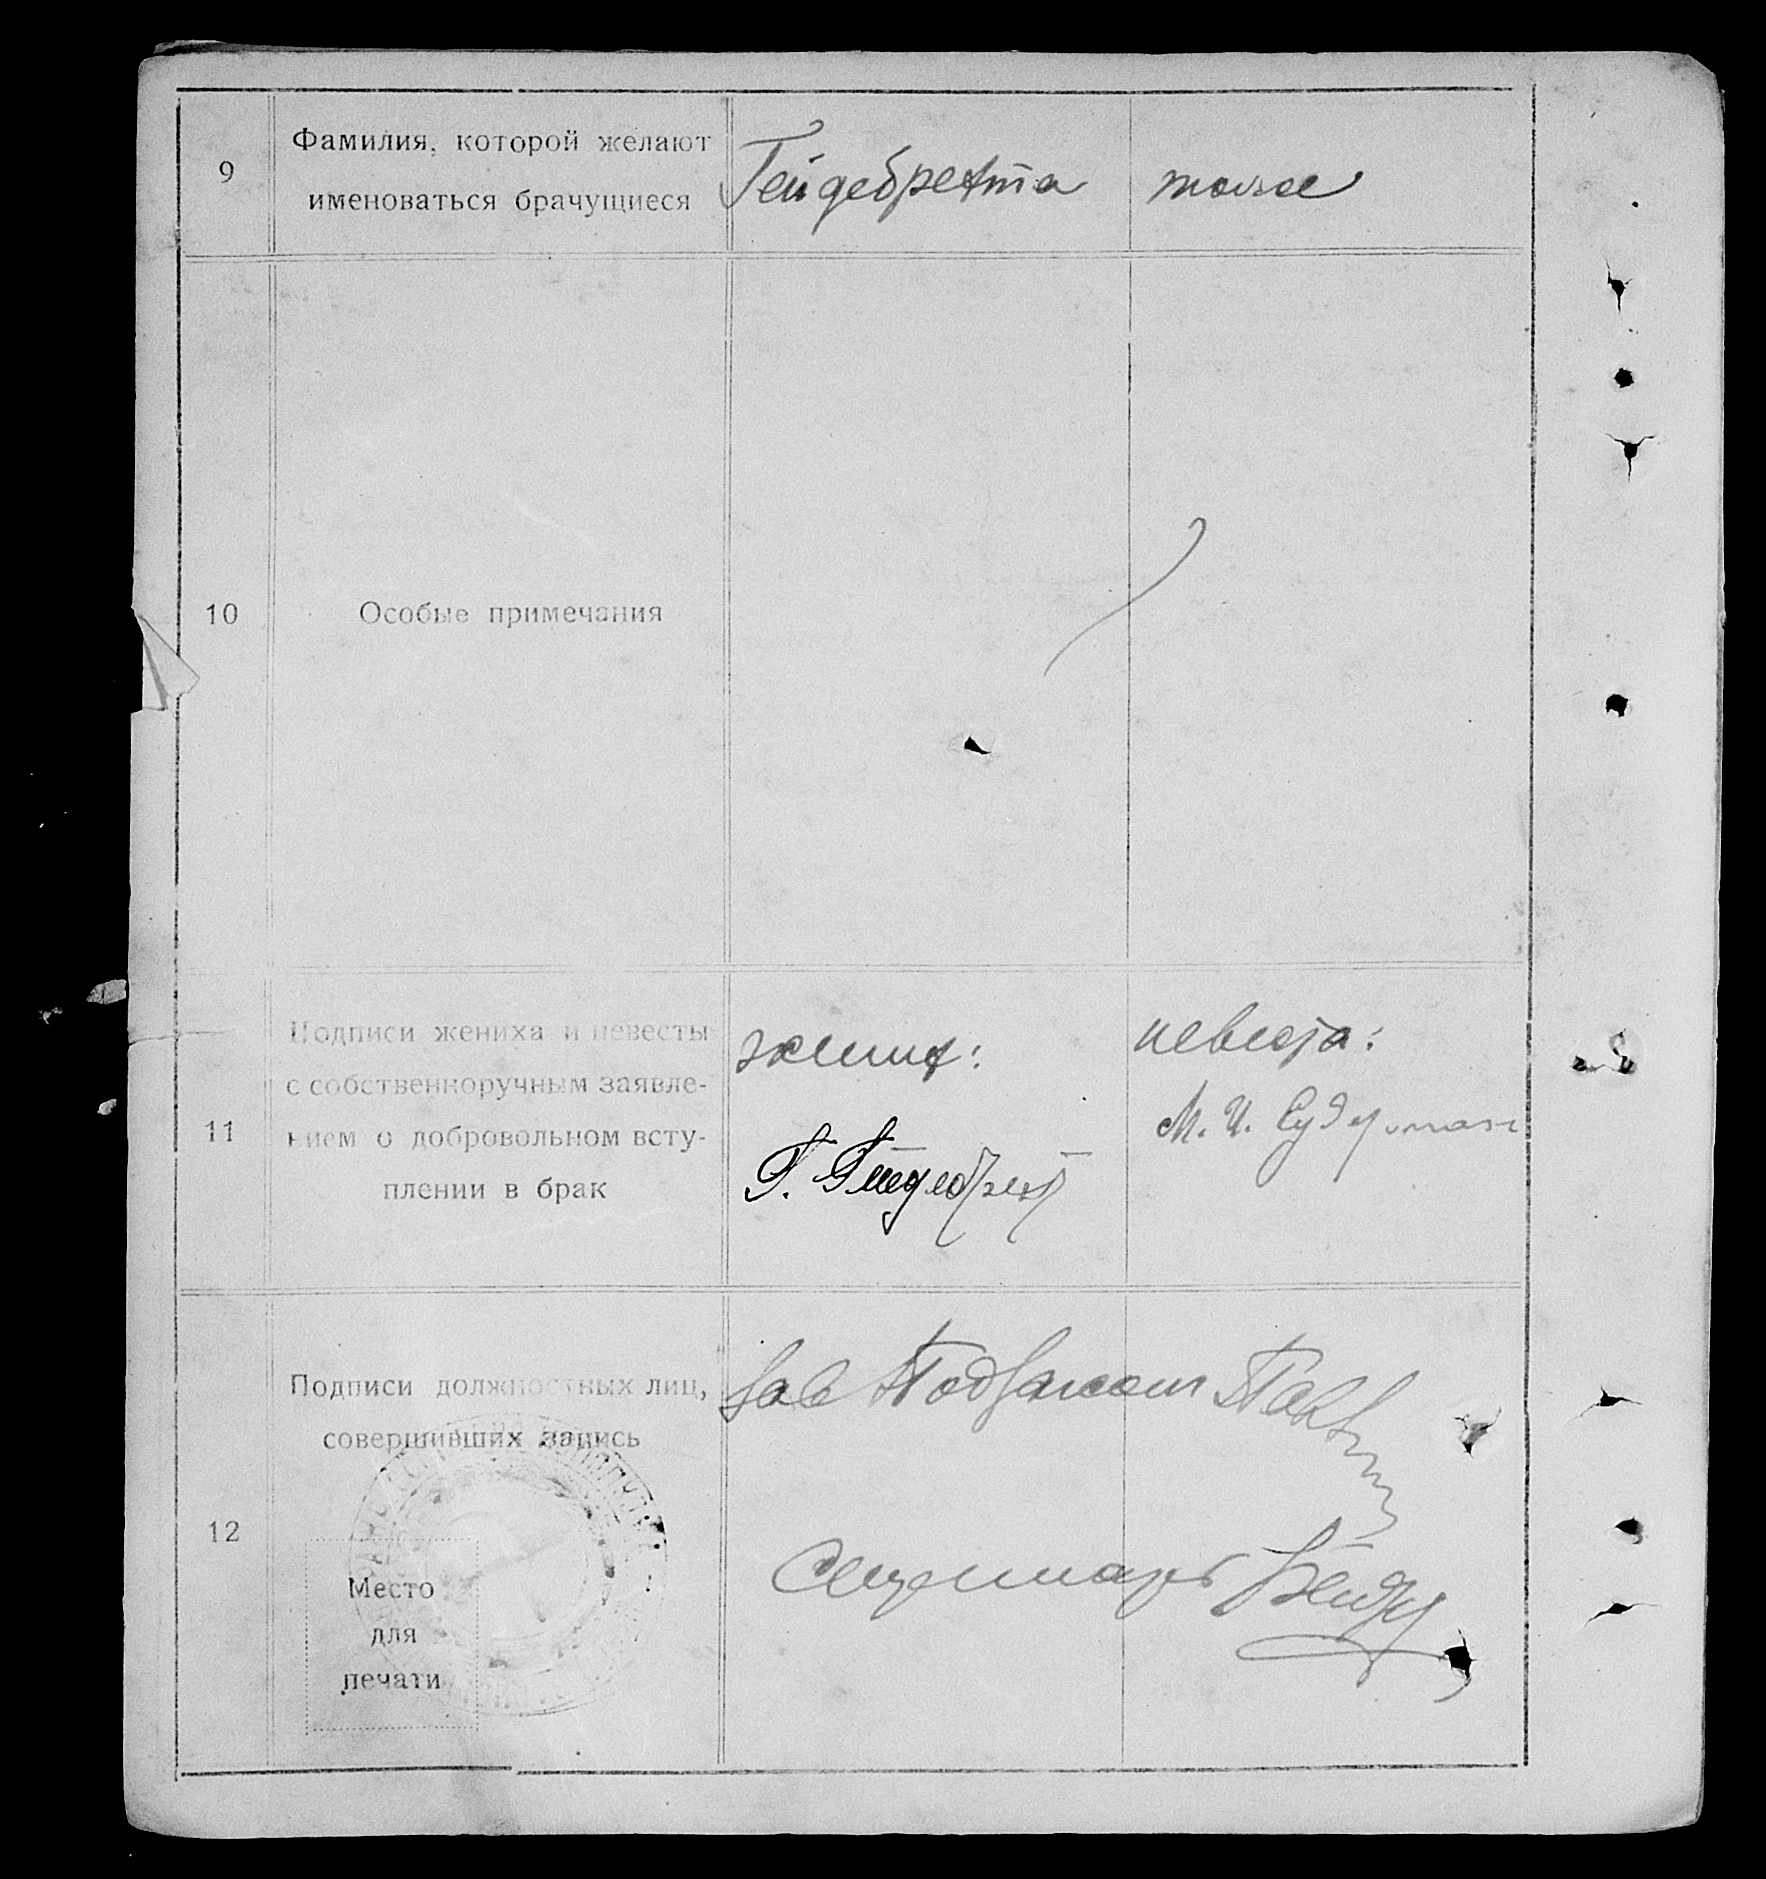 9
Фамилия, которой желают
именоваться брачущиеся
Гейдебрехта
тоже
10
Особые примечания
11
Подписи жениха и невесты
с собственноручным заявле-
нием о добровольном всту-
плении в брак
жених:
Г. Гейдебрехт
невеста:
М. И. Судерман
12
Подписи должностных лиц,
совершивших запись
Место
для
печати
Зав Подзагсом
Секретарь